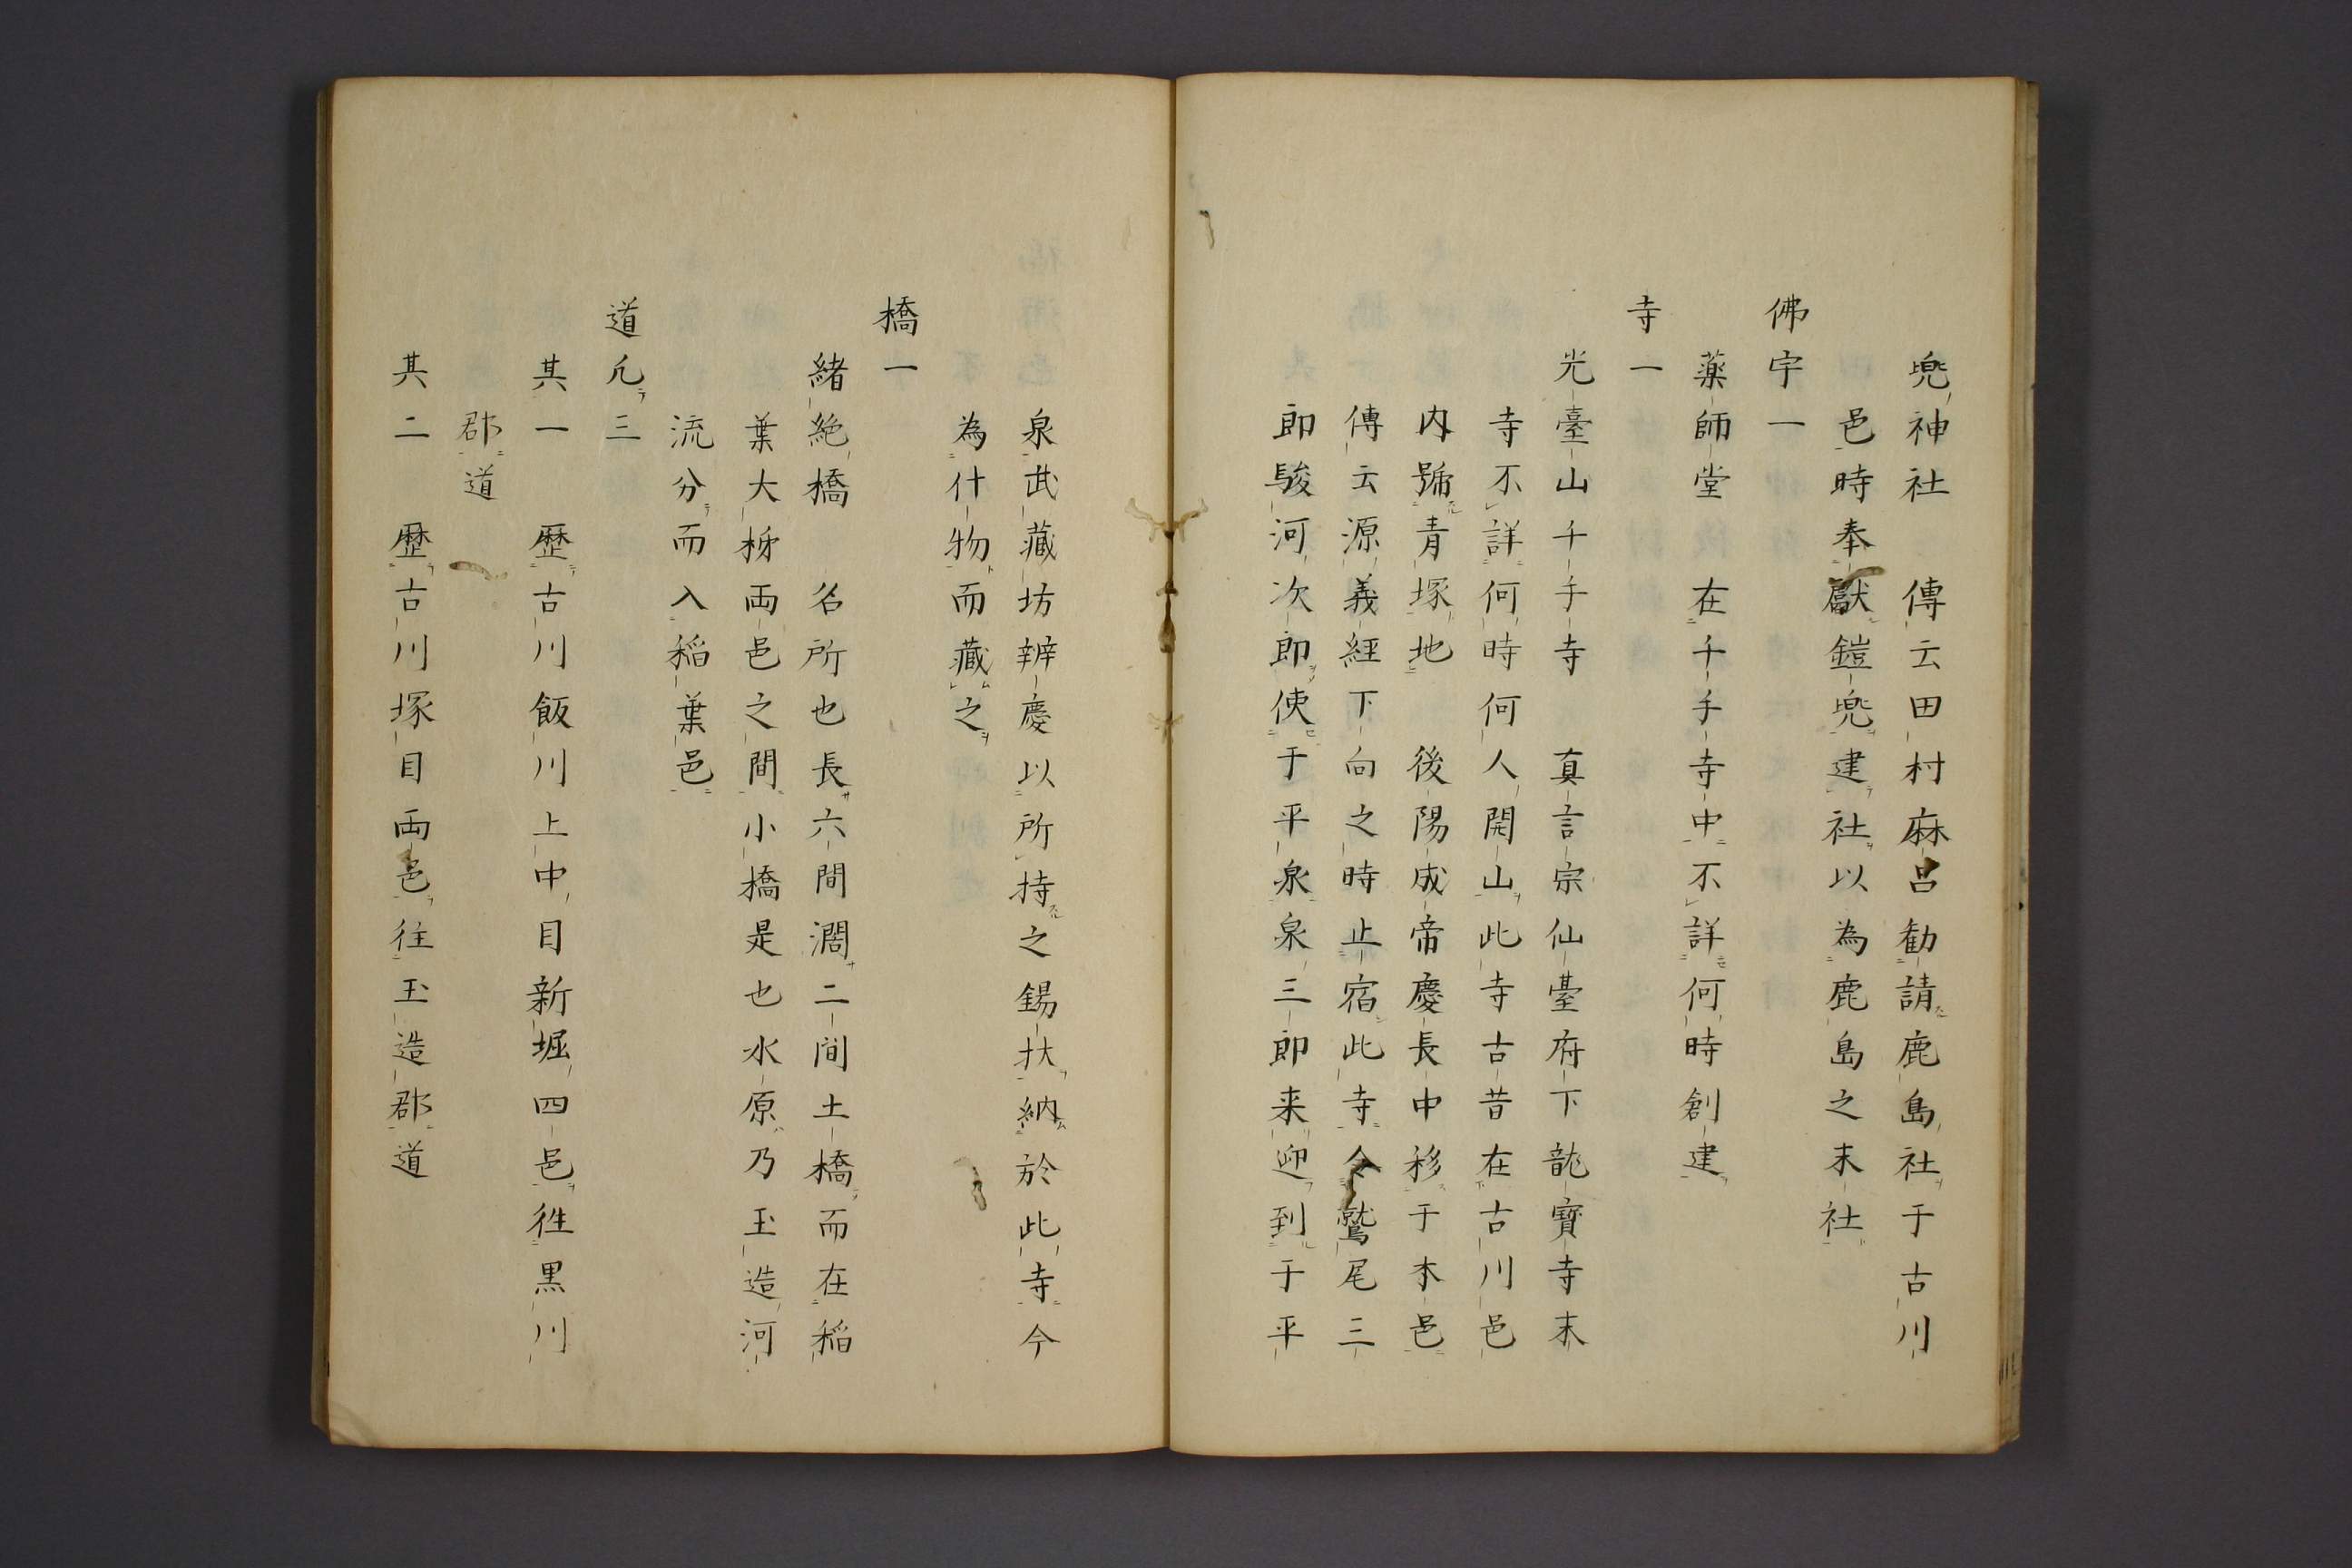 兜神社　傳云田村麻呂勧請鹿島社于古川
邑時奉獻鎧兜建社以為鹿島之末社
佛宇一
薬師堂　在千手寺中不詳何時創建
寺一
光臺山千手寺　真言宗仙臺府下龍寶寺末
寺不詳何時何人開山此寺古昔在古川邑
内號青塚地　後陽成帝慶長中移于本邑
傳云源義經下向之時止宿此寺令鷲尾三
郎駿河次郎使于平泉泉三郎来迎到于平
泉武藏坊辨慶以所持之錫杖納於此寺今
為什物而藏之
橋一
緒絶橋　名所也長六間濶二間土橋而在稲
葉大柹両邑之間小橋是也水原乃玉造河
流分而入稲葉邑
道凡三
其一　歴古川飯川上中目新堀四邑徃黒川
郡道
其二　歴古川塚目両邑往玉造郡道